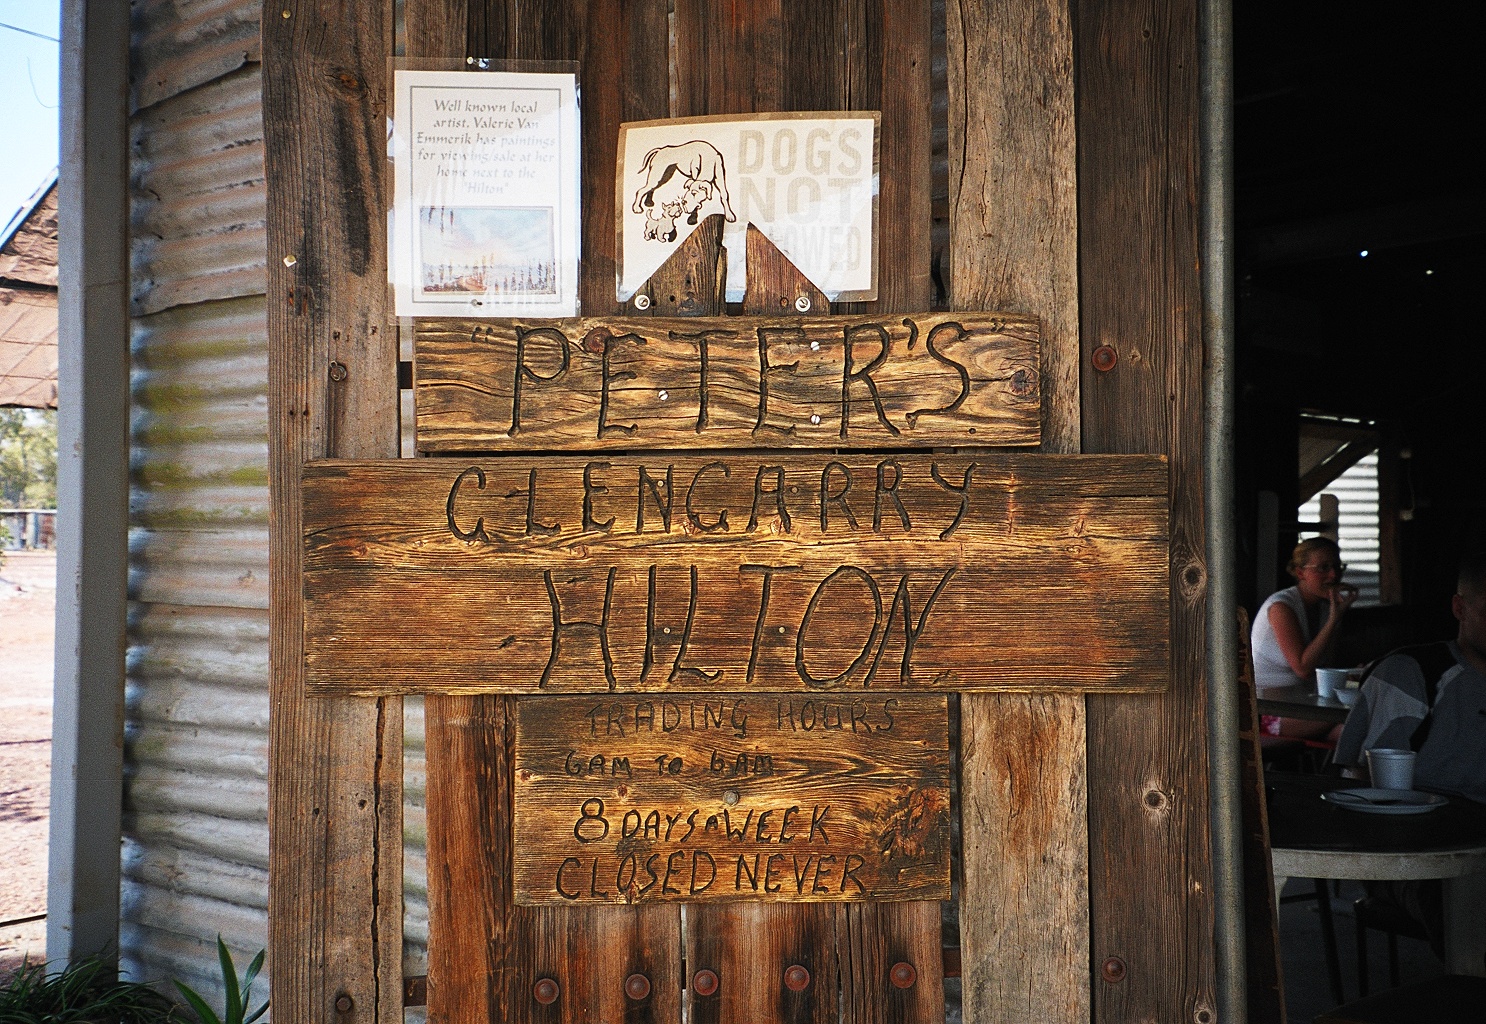 Well known local
artist, Valerie Van
Emmerik has paintings
for viewing/sale at her
home next to the
"Hilton"
DOGS
NOT
"PETER'S"
GLENGARRY
HILTON
TRADING HOURS
6AM TO 6AM
8 DAYS A WEEK
CLOSED NEVER